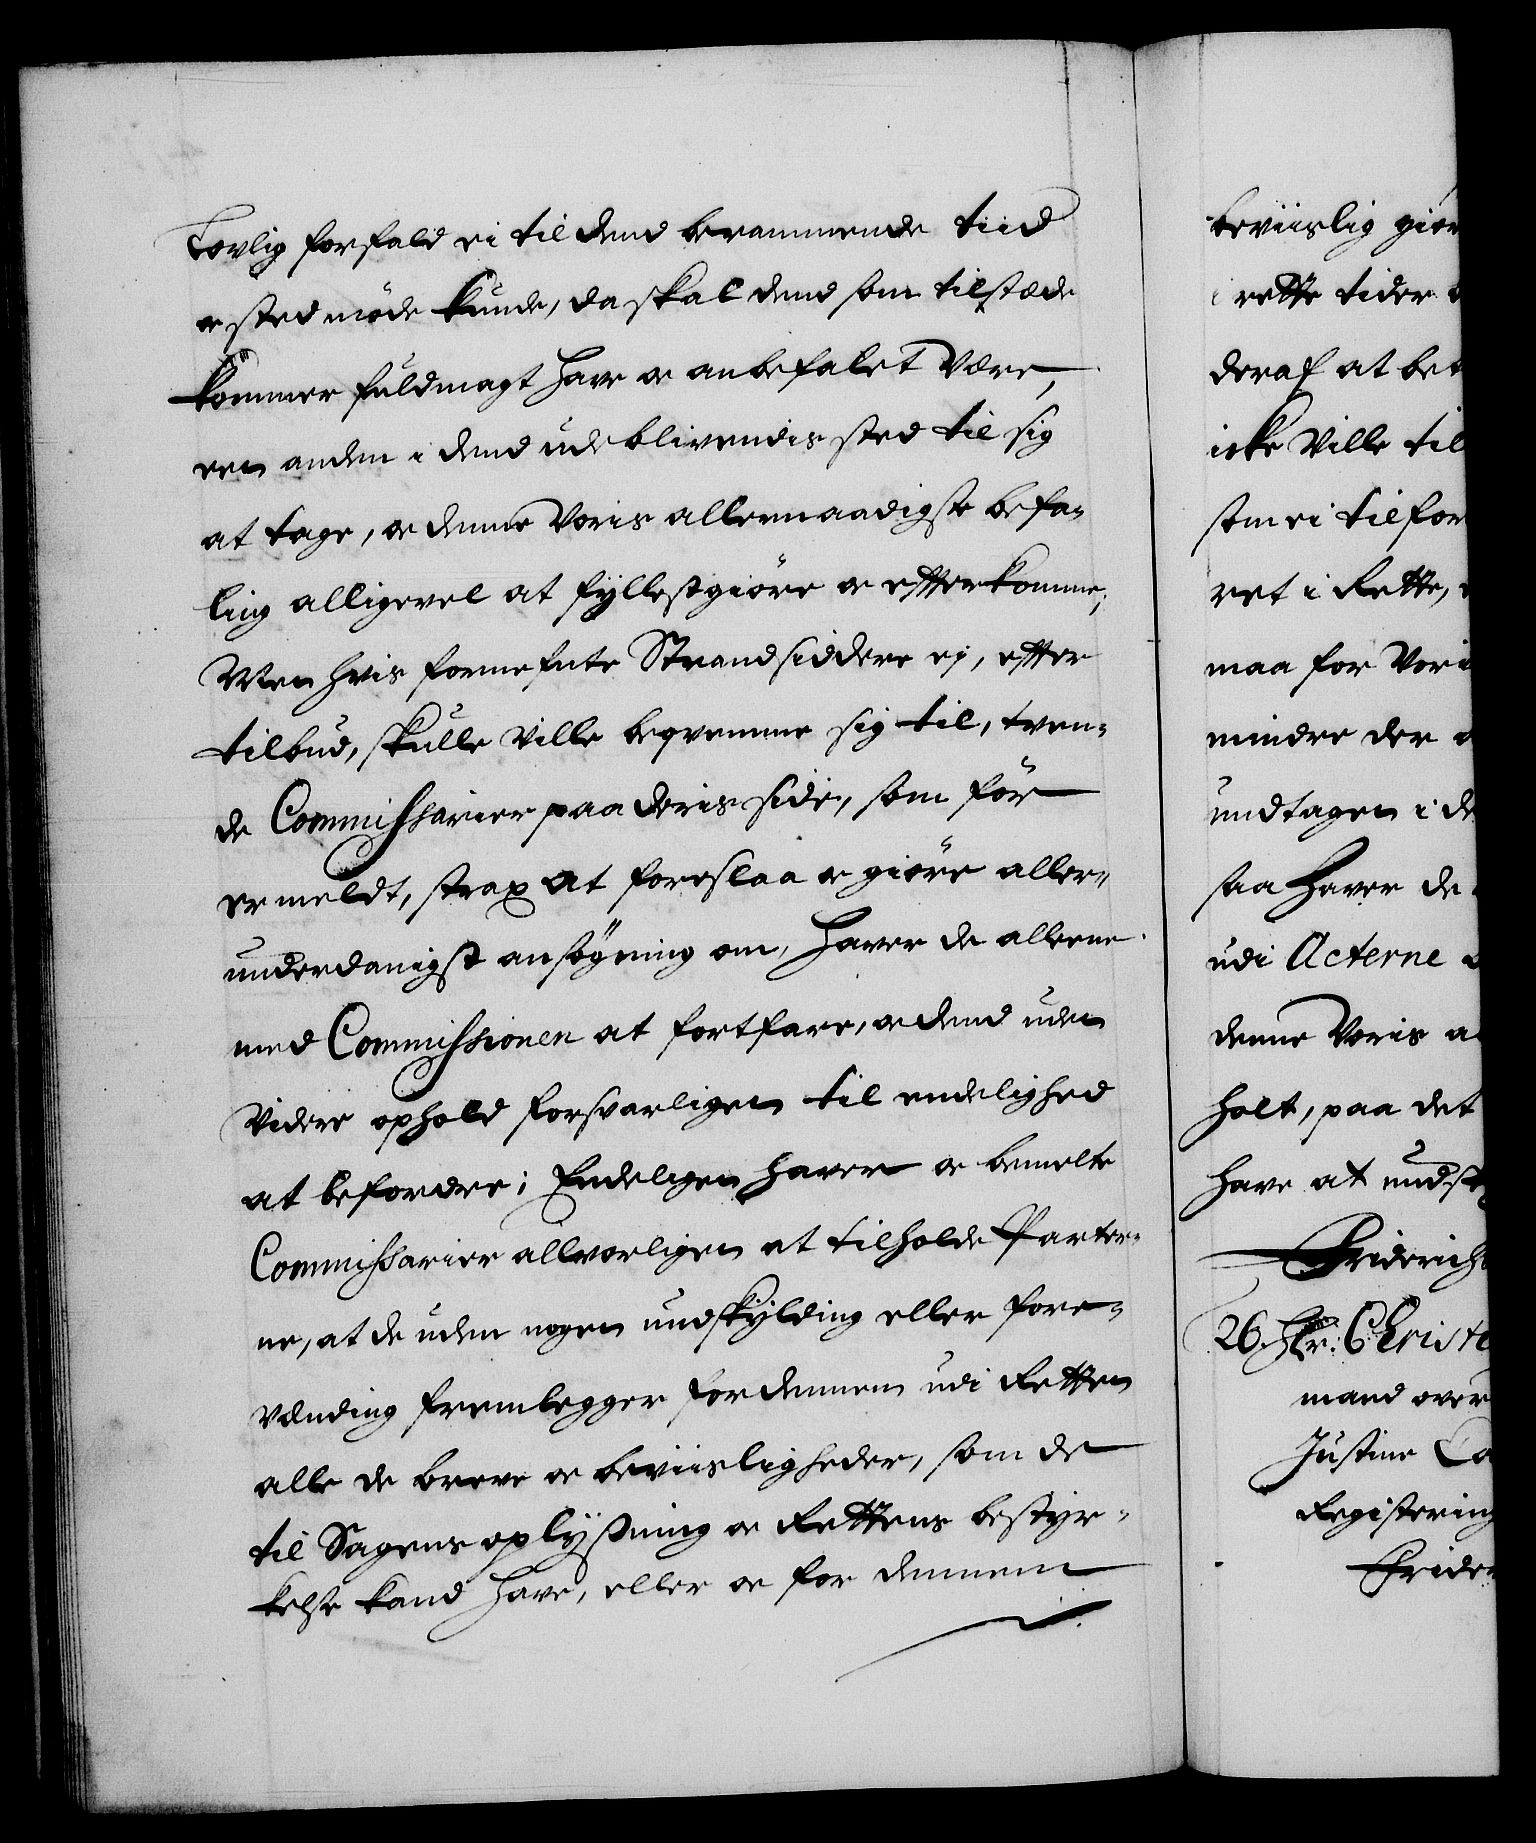 Lovlig forfald ei til dend berammende tiid
oc sted møde kunde, da skal dend som tilstæde
kommer fuldmagt have oc anbefalet være,
een anden i dend udeblivendis sted til sig
at tage, oc denne Voris allernaadigste befa-
ling alligevel at fyllestgiøre oc efterkomme;
Men hvis fornefnte Strandsiddere ej, efter
tilbud, skulle ville beqvemme sig til, tven-
de Commissarier paa deris side, som før
er meldt, strax at foreslaa oc giøre aller-
underdanigst ansøgning om, haver de alleene
med Commissionen at fortfare, oc dend uden
videre ophold forsvarligen til endelighed
at befordre; Endeligen haver oc bemelte
Commissarier allvorligen at tilholde Parter-
ne, at de uden nogen undskylding eller fore-
vending fremlegger for dennem udi Retten
alle de breve oc beviisligheder, som de
til Sagens oplysning oc Rettens bestyr-
kelse kand have, eller oc for dennem
beviislig giør
i rette tider
deraf at bet
icke Ville til
som ei tilfor
ret i Rette,
maa for Vori
mindre der
undtagen i de
saa haver de
udi Acterne
denne Voris a
holt, paa det
have at udst
Friderichs
26. Hr: Christ
mand over
Justine Ca
Registering
Frider